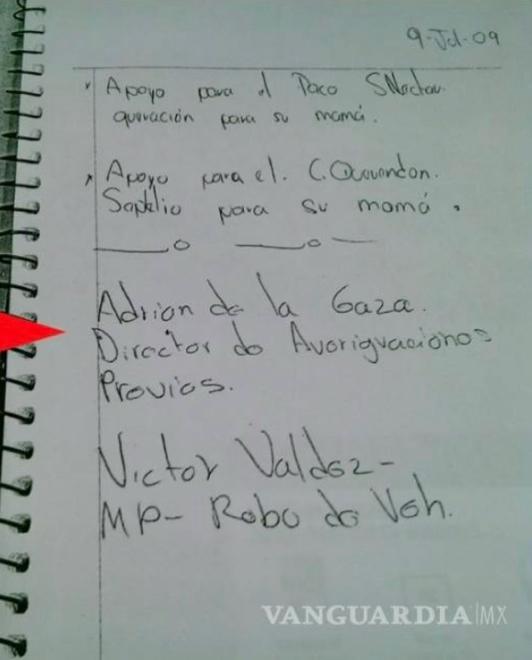 9-Jul-09
Apoyo para el Paco
para su mamá.
Apoyo para el. C.
para su mamá.
Adrian de la Gaza.
Director de Averiguaciones
Previas.
Victor Valdez-
MP- Robo de Veh.
VANGUARDIA|MX